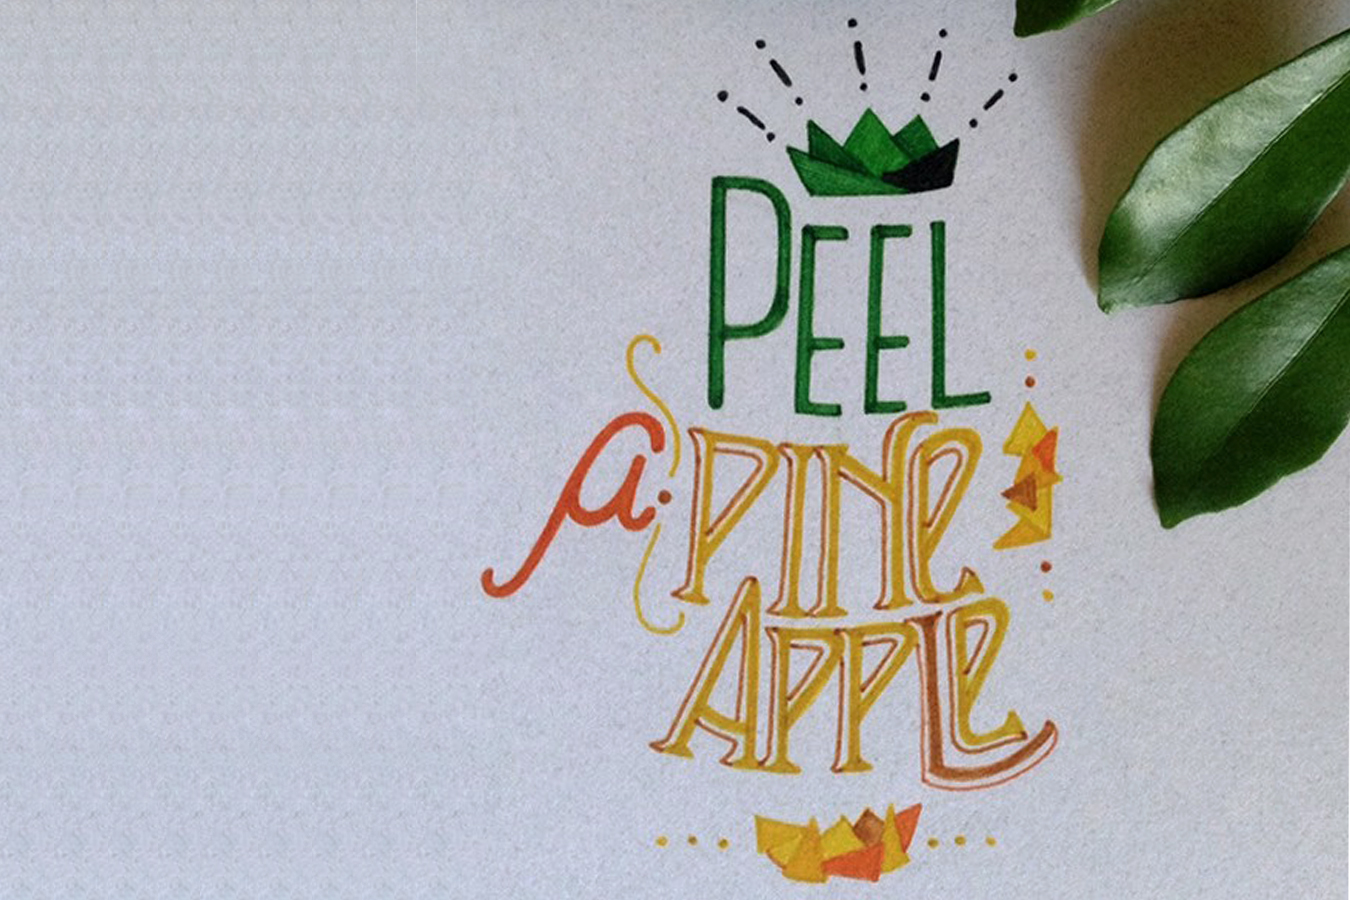 PEEL
a PINE
APPLE